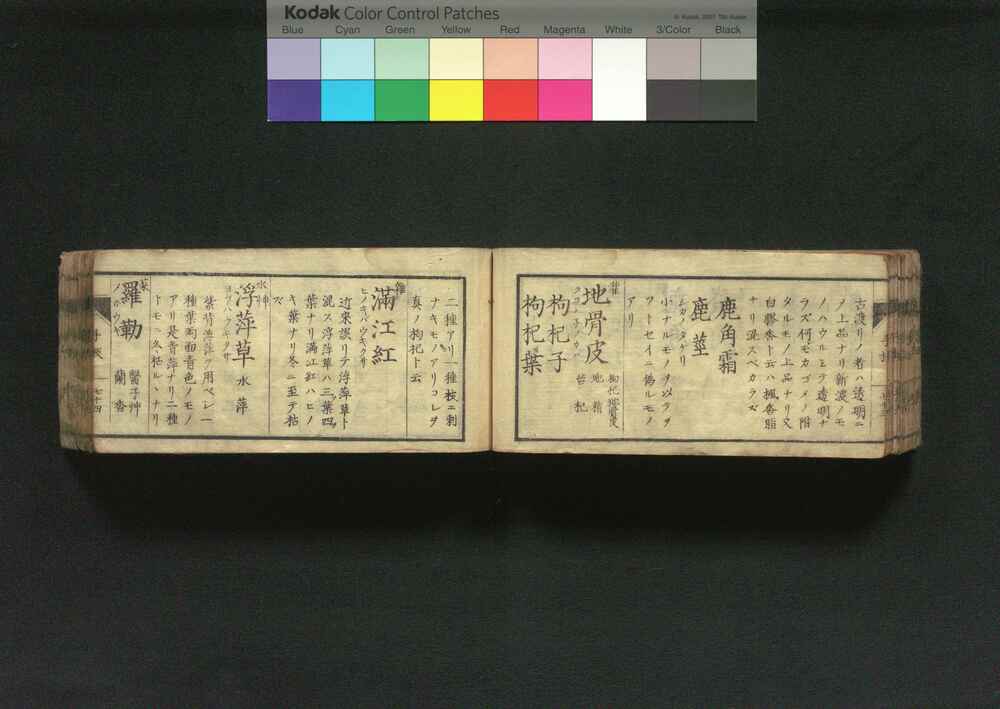 Kodak Color Control Patches
© Kodak, 2007 TM: Kodak
Blue Cyan Green Yellow Red Magenta White 3/Color Black
古渡リノ者ハ透明ニ
ノ上品ナリ新渡ノモ
ノハウルミテ透明ナ
ラズ何モカゴメノ附
タルモノ上品ナリ又
白膠香ト云ハ楓香脂
ナリ混スベカラズ
鹿角霜
鹿茎
小ナルモノヲ以テヲ
ツトセイニ偽ルモノ
アリ
地骨皮
地精
枸杞子
枸杞葉
二種アリ一種枝ニ刺
ナキモノアリコレヲ
真ノ枸杞ト云
滿江紅
近來誤リテ浮萍草ト
混ス浮萍草ハ三葉四
葉ナリ滿江紅ハヒノ
キ葉ナリ冬ニ至テ枯
ズ
浮萍草 水萍
紫背浮萍ヲ用ベシ一
種葉両面青色ノモノ
アリ是青萍ナリ二種
トモニ久
羅勒
醫子艸
蘭香